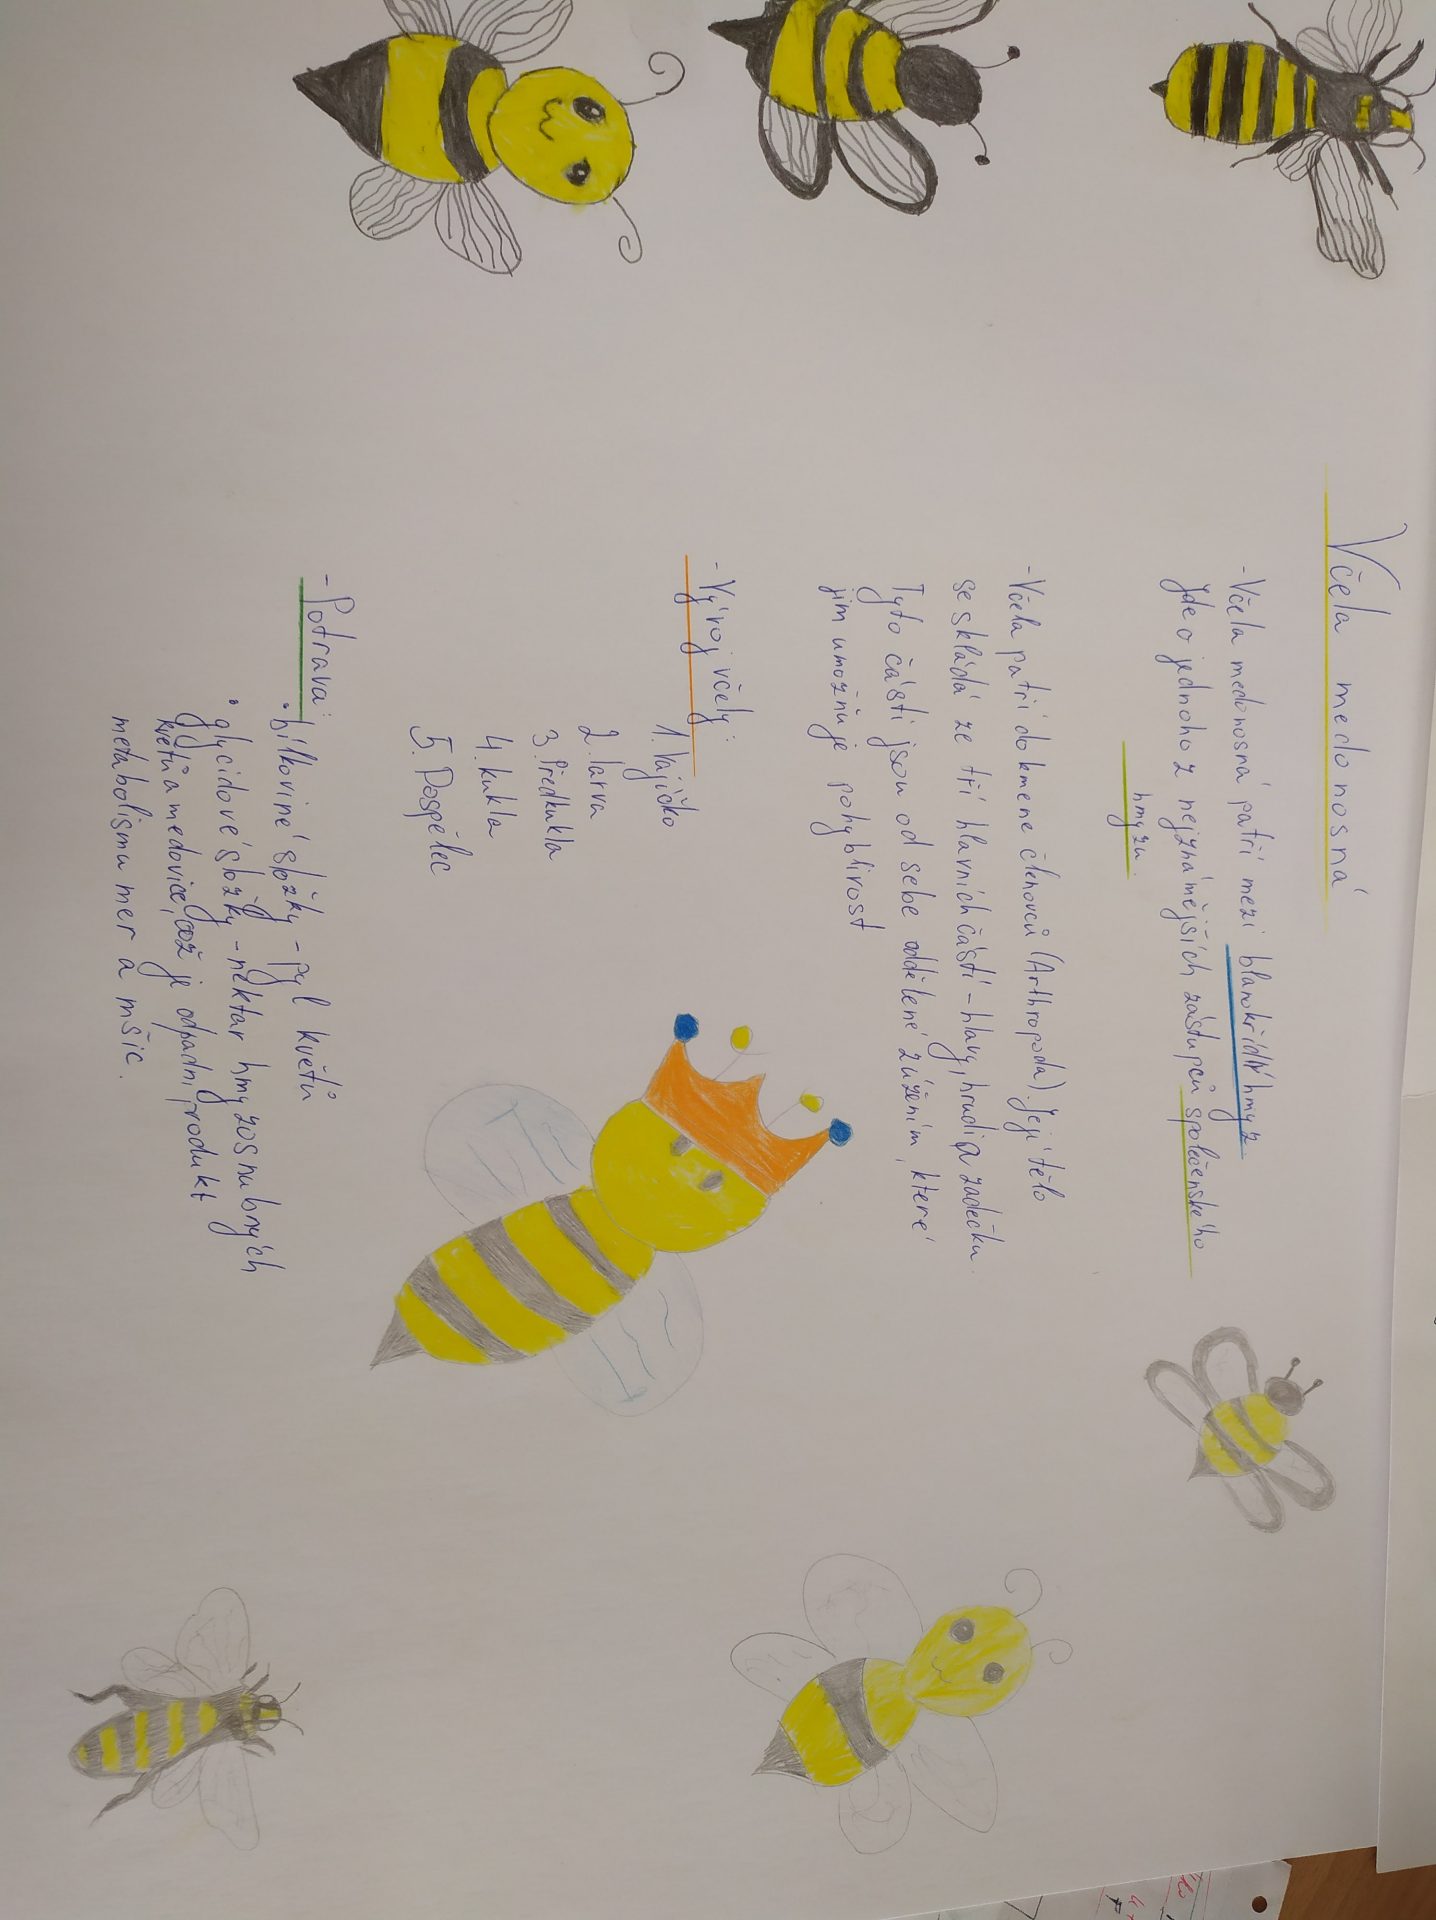 Včela medonosná
- Včela medonosná patří mezi blanokřídlý hmyz
Jde o jednoho z nejznámějších zástupců společenského
hmyzu.
- Včela patří do kmene členovců (Arthropoda). Její tělo
se skládá ze tří hlavních částí - hlavy, hrudi a zadečku.
Tyto části jsou od sebe oddělené zúžením, které
jim umožňuje pohyblivost
- Vývoj včely:
1. Vajíčko
2. larva
3. Předkukla
4. kukla
5. Dospělec
- Potrava:
• bílkoviné složky - pyl květů
• glycidové složky - nektar hmyzosnubných
květů a medovice, což je odpadní produkt
metabolismu mer a mšic.